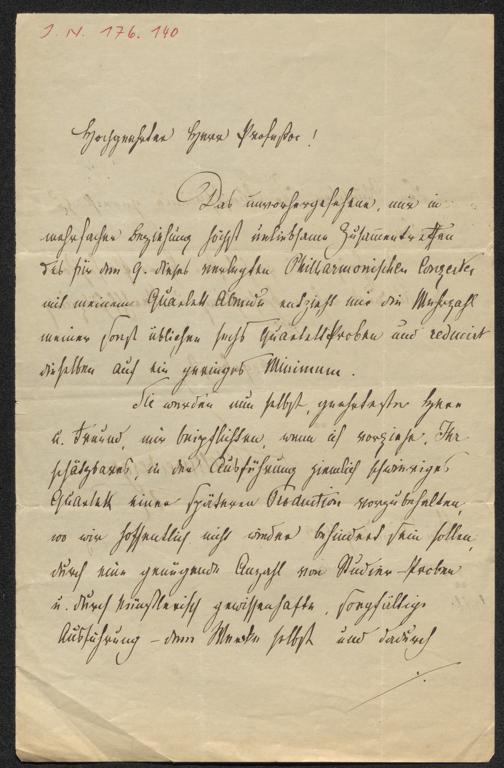 J. N. 176.140
Hochgeehrter Herr Professor!
Das unvorhergesehene, mir in
mehrfacher Beziehung höchst unliebsame Zusammentreffen
des für den 9. dieses verlegten Philharmonischen Conzertes
mit meinem Quartett Abende entzieht mir die Mehrzahl
meiner sonst üblichen sechs Quartettproben und reducirt
dieselben auf ein geringes Minimum.
Sie werden nun selbst, geehrtester Herr
u. Freund, mir beipflichten, wenn ich vorziehe, Ihr
schätzbares, in der Ausführung ziemlich schwieriges
Quartett einer späteren Production vorzubehalten,
wo wir hoffentlich nicht wieder behindert sein sollen,
durch eine genügende Anzahl von Studier-Proben
u. durch künstlerisch gewissenhafte, sorgfältige
Ausführung – dem Werke selbst und dadurch